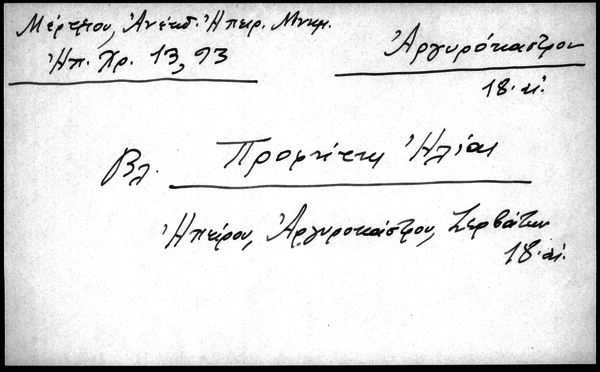 Μέρτζιου, Ἀνέκδ. Ἠπειρ. Μνημ.
Ἠπ. Χρ. 13, 93
Ἀργυρόκαστρον
18. αἰ.
Βλ. Προφήτης Ἠλίας
Ἠπείρου, Ἀργυροκάστρου, Σερβάτων
18. αἰ.